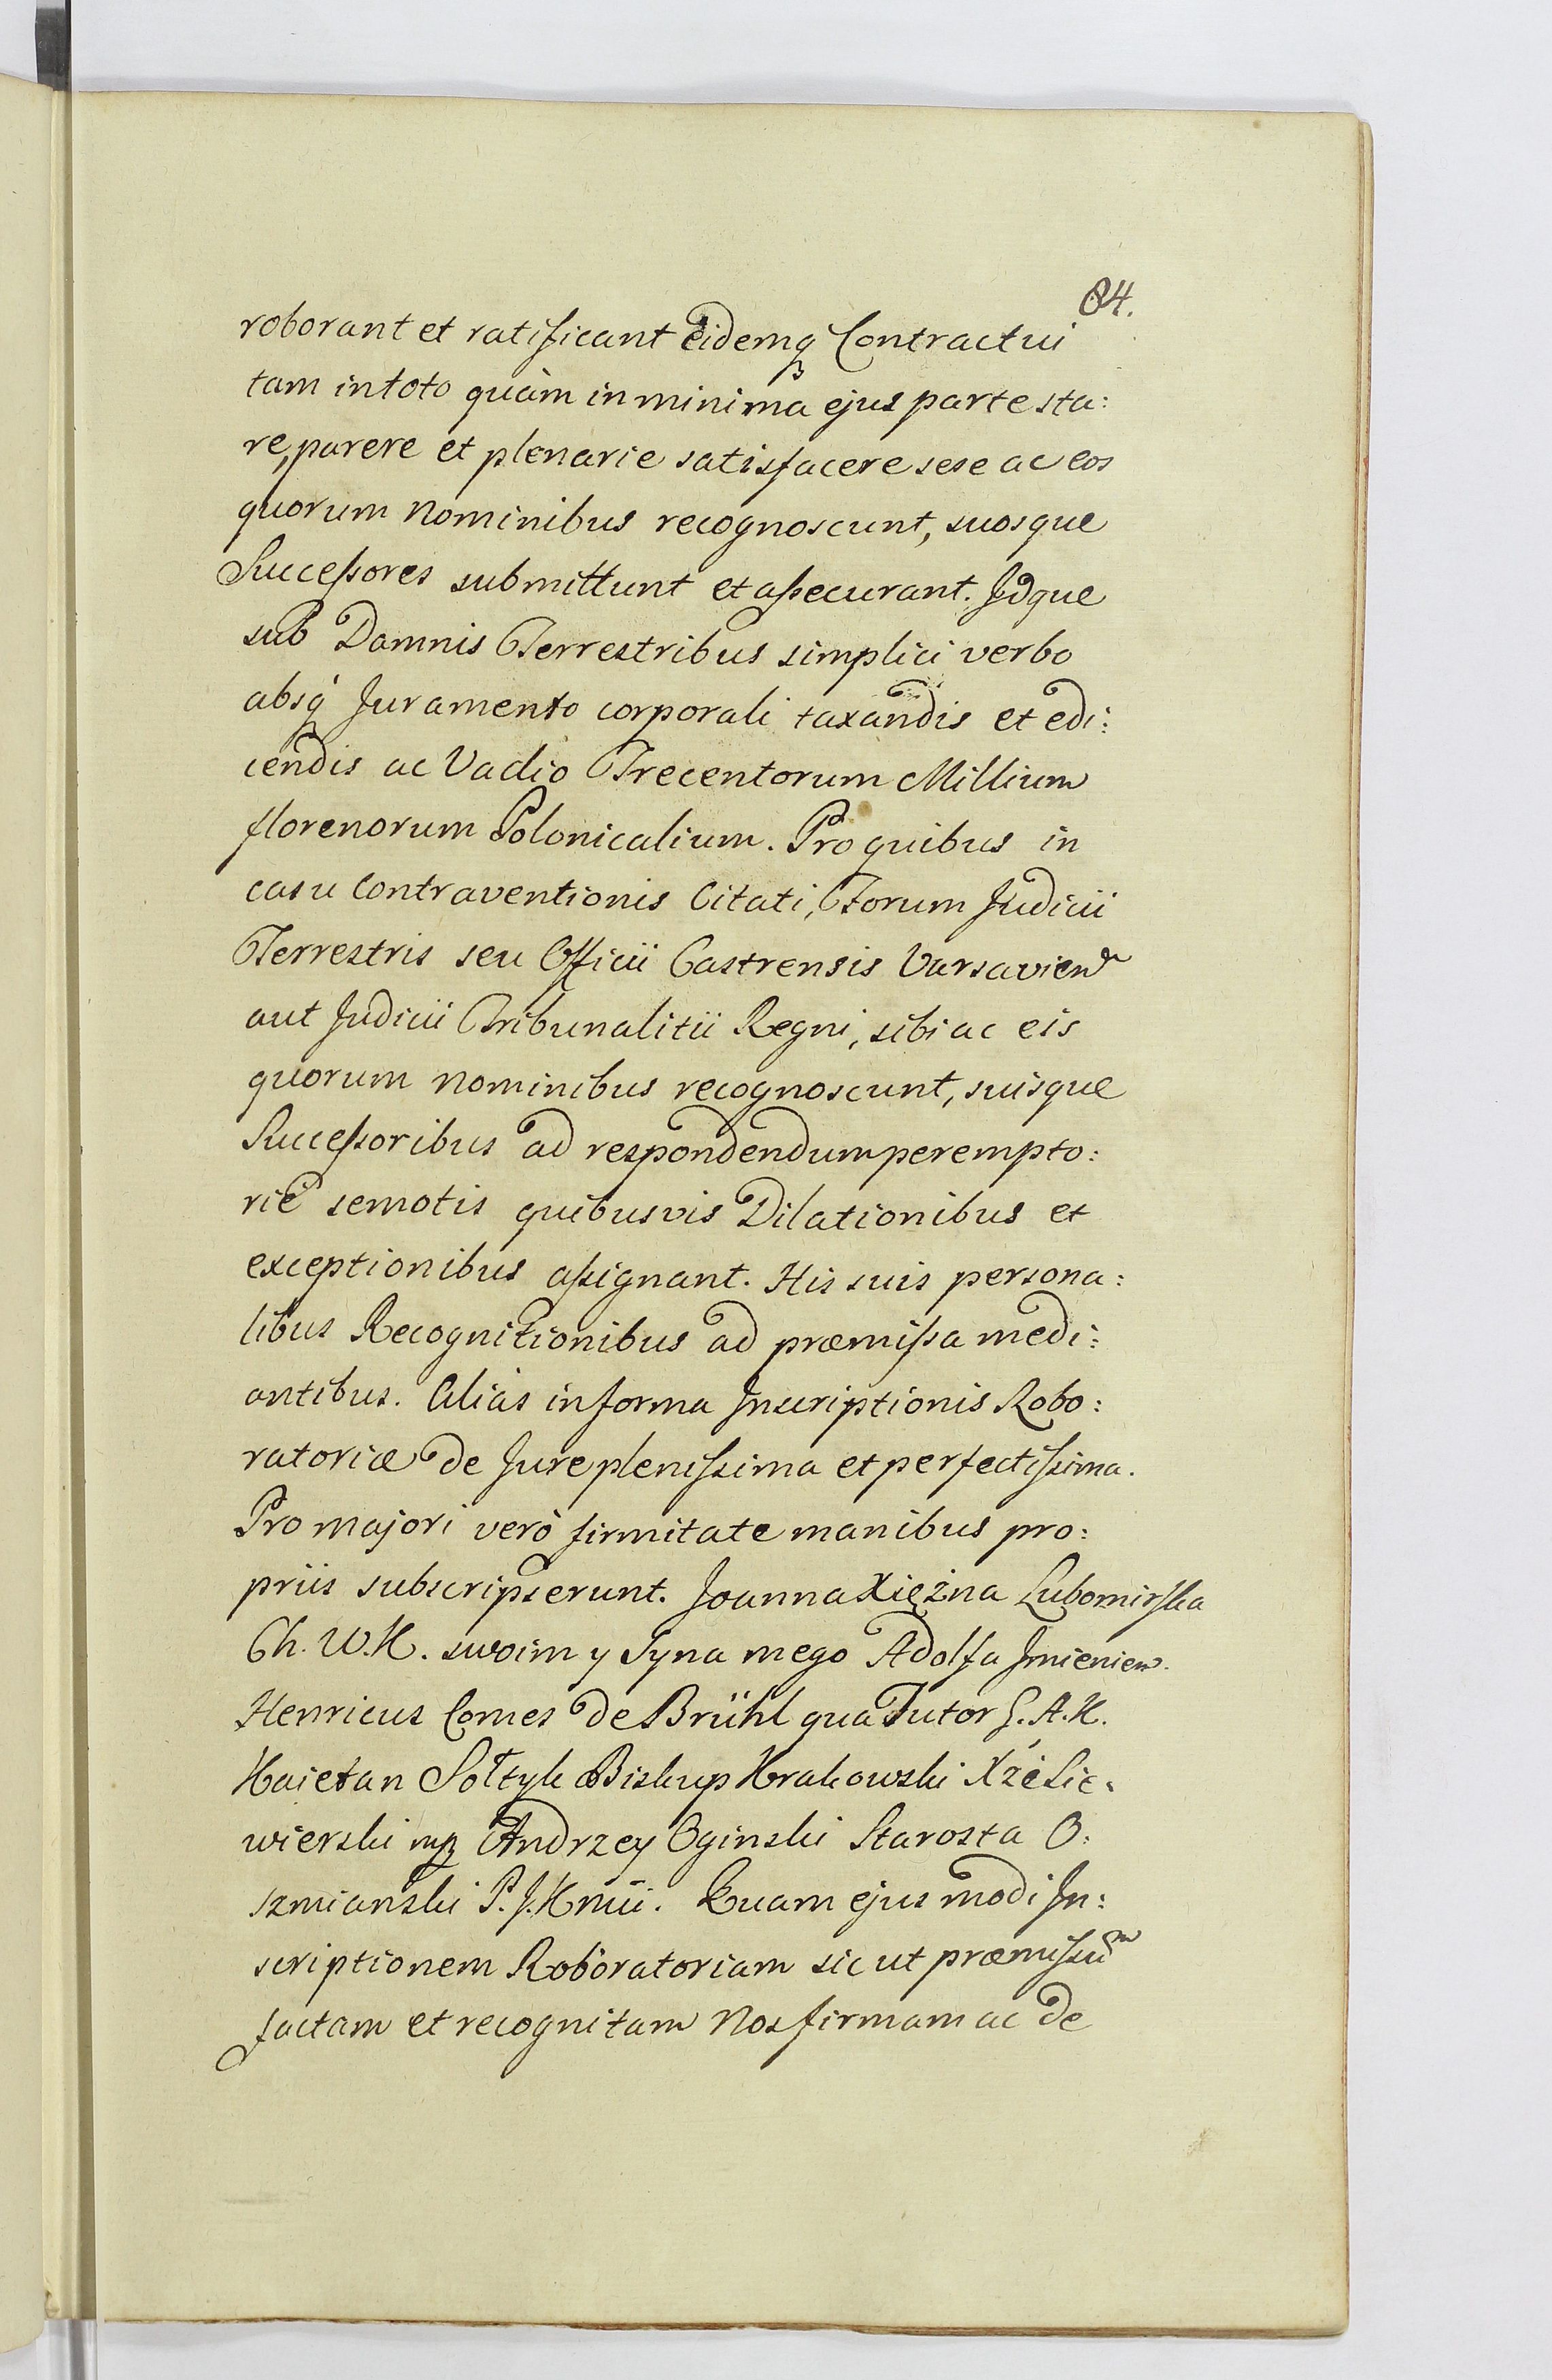 84.
roborant et ratificant Eidemq₃ Contractui
tam in toto quàm in minima ejus parte sta:
re, parere et plenarie satisfacere sese ac eos
quorum Nominibus recognoscunt, suosque
Successores submittunt et assecurant. Idque
sub Damnis Terrestribus simplici verbo
absq₃ Juramento corporali taxandis et edi:
cendis ac Vadio Trecentorum Millium
florenorum Polonicalium. Pro quibus in
casu Contraventionis Citati, Forum Judicii
Terrestris seu Officii Castrensis Varsavien
aut Judicii Tribunalitii Regni, sibi ac eis
quorum Nominibus recognoscunt, suisque
Successoribus ad respondendum perempto:
rie semotis quibusvis Dilationibus et
exceptionibus assignant. His suis persona:
libus Recognitionibus ad præmissa medi:
antibus. Alias in forma Inscriptionis Robo:
ratoriæ de Jure plenissima et perfectissima.
Pro majori verò firmitate manibus pro:
priis subscripserunt. Joanna Xiężna Lubomirska
Ch. W. K. swoim y Syna mego Adolfa Jmieniem.
Henricus Comes de Brühl qua Tutor S. A. K.
Kaietan Sołtyk Biskup Krakowski Xżę Sie:
wierski mp Andrzey Oginski Starosta O:
szmianski P. J. K mü. Quam ejusmodi In:
scriptionem Roboratoriam sic ut præmissum
factam et recognitam Nos firmam ac de